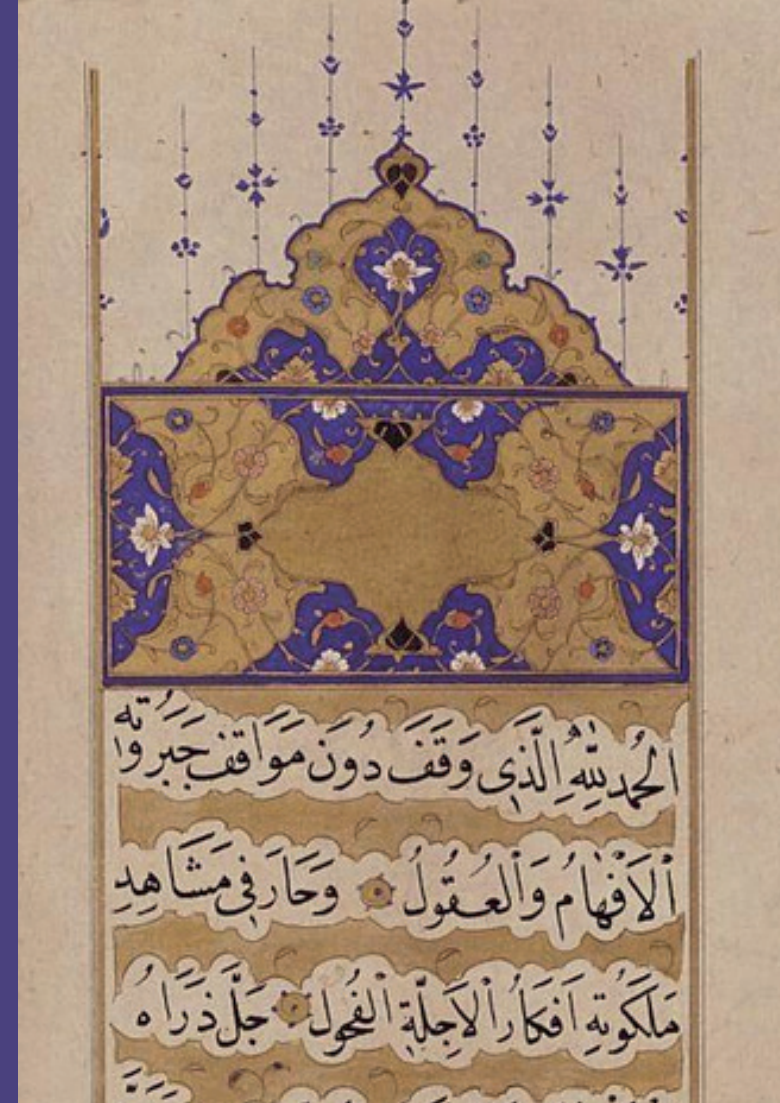 الحمد لله الذى وقف دون مواقف جبروته
الافهام والعقول وحار فى مشاهد
ملكوته افكار الاجلة الفحول جل ذراه